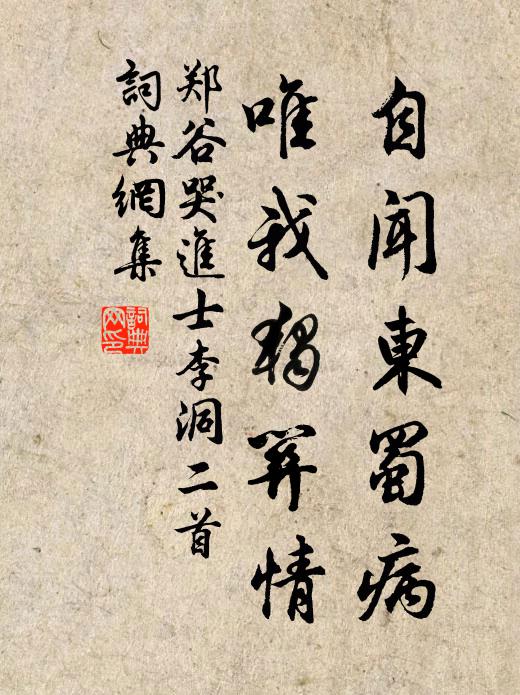 自聞東蜀病
唯我獨關情
郑谷哭進士李洞二首
詞典網集
詞典
网印